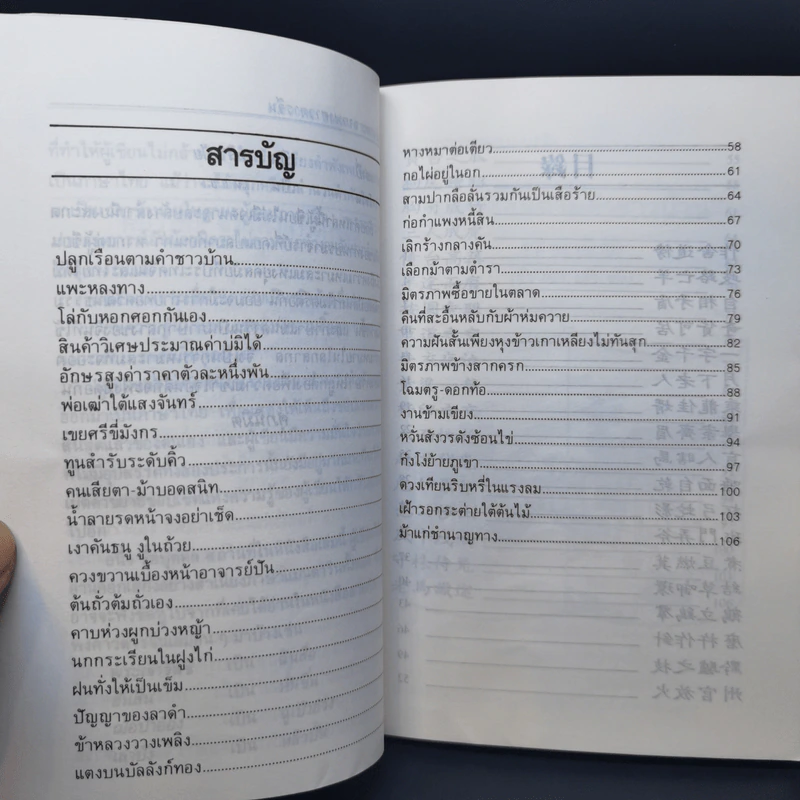 สารบัญ
ปลูกเรือนตามคำชาวบ้าน
แพะหลงทาง
โล่กับหอกศอกกันเอง
สินค้าวิเศษประมาณค่าบมิได้
อักษรสูงค่าราคาตัวละหนึ่งพัน
พ่อเฒ่าใต้แสงจันทร์
เขยศรีขี่มังกร
ทูนสำรับระดับคิ้ว
คนเสียตา-ม้าบอดสนิท
น้ำลายรดหน้าจงอย่าเช็ด
เงาคันธนู งูในถ้วย
ควงขวานเบื้องหน้าอาจารย์ปัน
ต้นถั่วต้มถั่วเอง
คาบห่วงผูกบ่วงหญ้า
นกกระเรียนในฝูงไก่
ฝนทั่งให้เป็นเข็ม
ปัญญาของลาดำ
ข้าหลวงวางเพลิง
แตงบนบัลลังก์ทอง
หางหมาต่อเตียว 58
กอไผ่อยู่ในอก 61
สามปากลือลั่นรวมกันเป็นเสือร้าย 64
ก่อกำแพงหนี้สิน 67
เลิกร้างกลางคัน 70
เลือกม้าตามตำรา 73
มิตรภาพซื้อขายในตลาด 76
คืนที่สะอื้นหลับกับผ้าห่มควาย 79
ความฝันสั้นเพียงหุงข้าวเกาเหลียงไม่ทันสุก 82
มิตรภาพข้างสากครก 85
โฉมตรู-ดอกท้อ 88
งานข้ามเขียง 91
หวั่นสังวรดังซ้อนไข่ 94
ก๋งโง่ย้ายภูเขา 97
ดวงเทียนริบหรี่ในแรงลม 100
เฝ้ารอกระต่ายใต้ต้นไม้ 103
ม้าแก่ชำนาญทาง 106